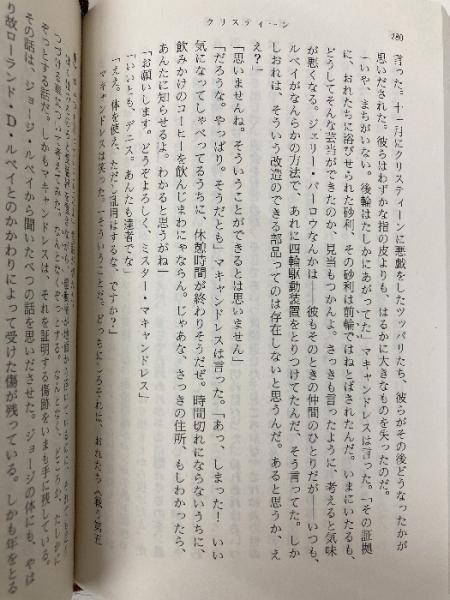 クリスティーン
280
言った。十一月にクリスティーンに悪戯をしたツッパリたち、彼らがその後どうなったかが
思いだされた。彼らはわずかな指の皮よりも、はるかに大きなものを失ったのだ。
「いや、まちがいない。後輪はたしかにあがってた」マキャンドレスは言った。「その証拠
に、おれたちに浴びせられた砂利、その砂利は前輪ではねとばされたんだ。いまにいたるも、
どうしてそんな芸当ができたのか、見当もつかんよ。さっきも言ったように、考えると気味
が悪くなる。ジェリー・バーロウなんかは――彼もそのときの仲間のひとりだが――いつも、
ルベイがなんらかの方法で、あれに四輪駆動装置をとりつけてたんだ、そう言ってた。しか
しおれは、そういう改造のできる部品ってのは存在しないと思うんだ。あると思うか、え
え？」
「思いませんね。そういうことができるとは思いません」
「だろうな。やっぱり。そうだとも」マキャンドレスは言った。「あっ、しまった！　いい
気になってしゃべってるうちに、休憩時間が終わりそうだぜ。時間切れにならないうちに、
飲みかけのコーヒーを飲んじまわにゃならん。じゃあな、さっきの住所、もしわかったら、
あんたに知らせるよ。わかると思うがね」
「お願いします。どうぞよろしく、ミスター・マキャンドレス」
「いいとも、デニス。あんたも達者でな」
「ええ。体を使え、ただし乱用はするな、ですか？」
マキャンドレスは笑った。
その話は、ジョージ・ルベイから聞いたべつの話を思いださせた。ジョージの体にも、やは
り故ローランド・D・ルベイとのかかわりによって受けた傷が残っている。しかも年をとる